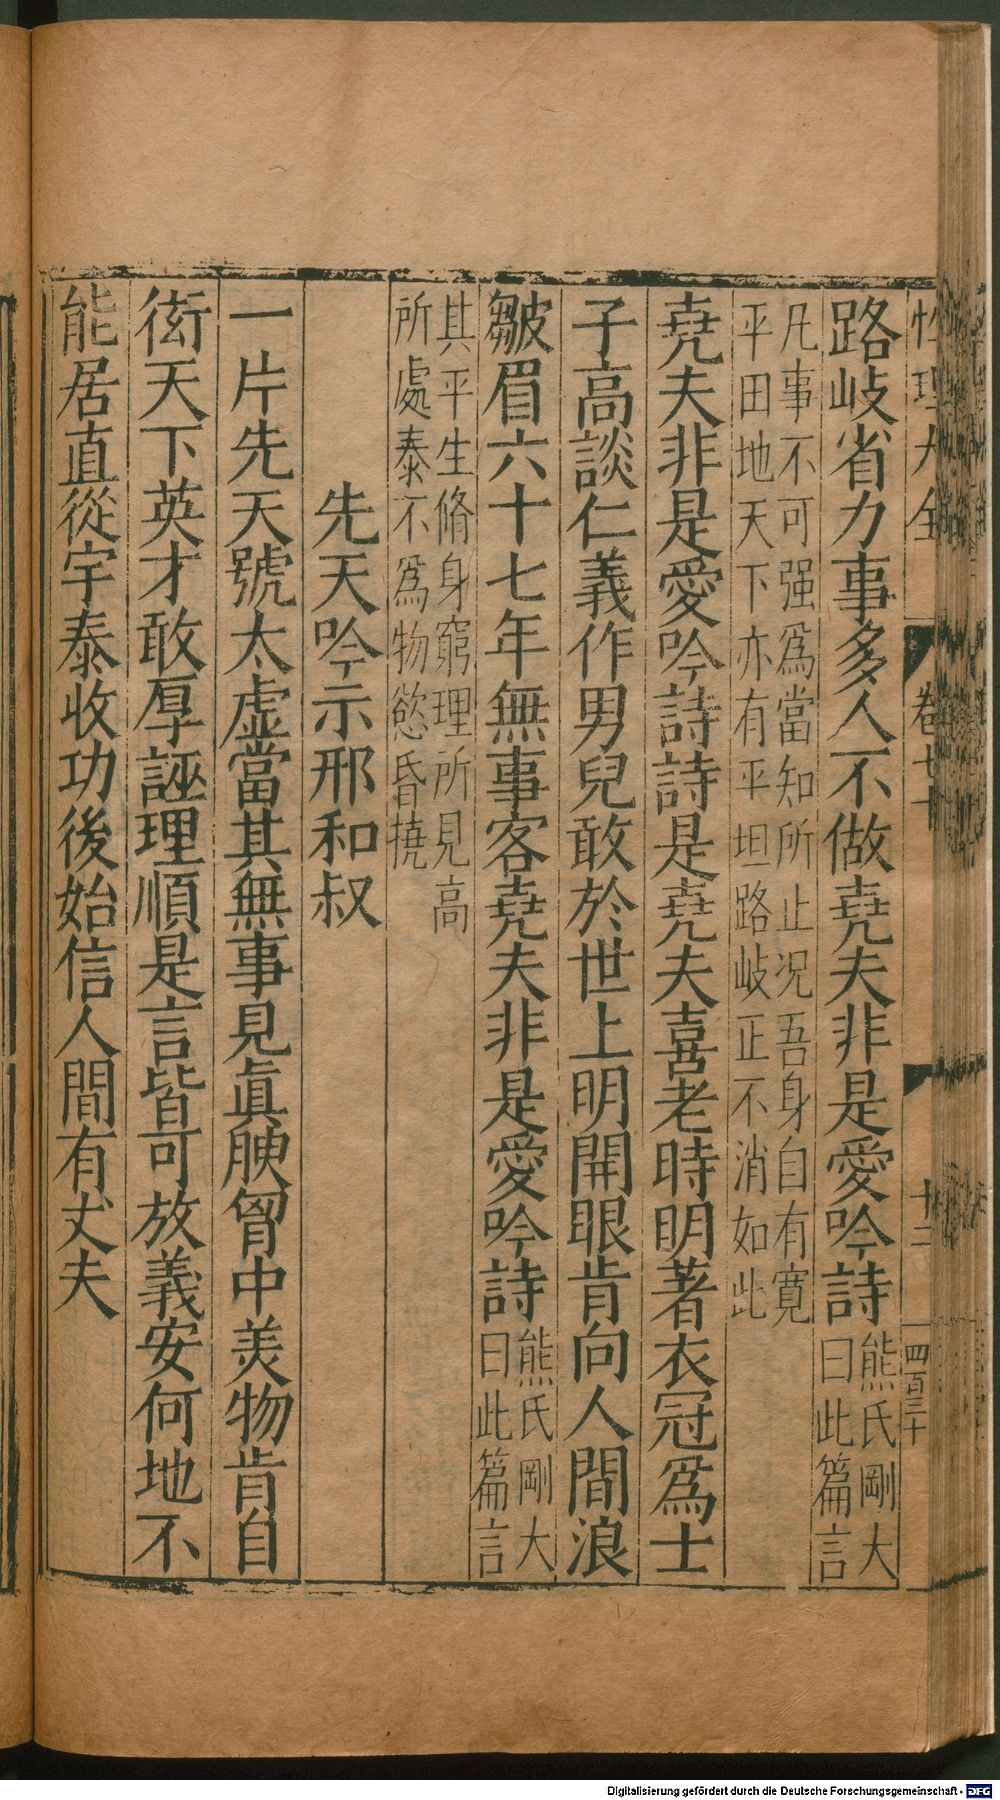 性理大全 卷七十 十二 四百三十
路岐省力事多人不做堯夫非是愛吟詩熊氏剛大曰此篇言
凡事不可强爲當知所止况吾身自有寛
平田地天下亦有平坦路岐正不消如此
堯夫非是愛吟詩詩是堯夫喜老時明著衣冠爲士
子高談仁義作男兒敢於世上明開眼肯向人間浪
皺眉六十七年無事客堯夫非是愛吟詩熊氏剛大曰此篇言
其平生脩身窮理所見高
所處泰不爲物慾昏撓
先天吟示邢和叔
一片先天號太虛當其無事見眞腴胷中美物肯自
衒天下英才敢厚誣理順是言皆可放義安何地不
能居直從宇泰收功後始信人間有丈夫
Digitalisierung gefördert durch die Deutsche Forschungsgemeinschaft - DFG